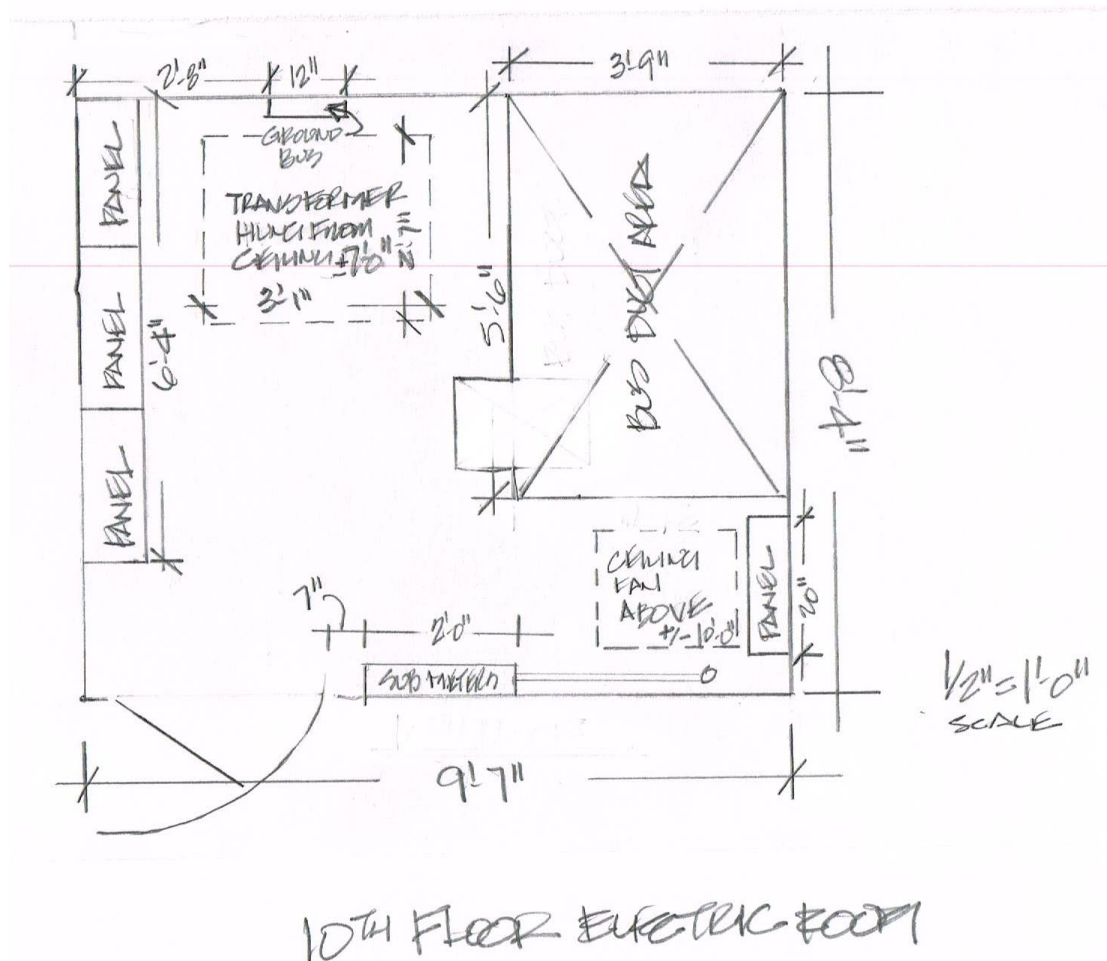 2'-8"
12"
3'-9"
GROUND
BUS
PANEL
TRANSFORMER
HUNG FROM
CEILING ±7'-0"
2'-7"
3'-1"
PANEL
6'-4"
5'-6"
BUS DUCT AREA
8'-4"
PANEL
CEILING
FAN
ABOVE
+/- 10'-0"
PANEL
20"
7"
2'-0"
SUB METERS
9'-7"
1/2"=1'-0"
SCALE
10TH FLOOR ELECTRIC ROOM